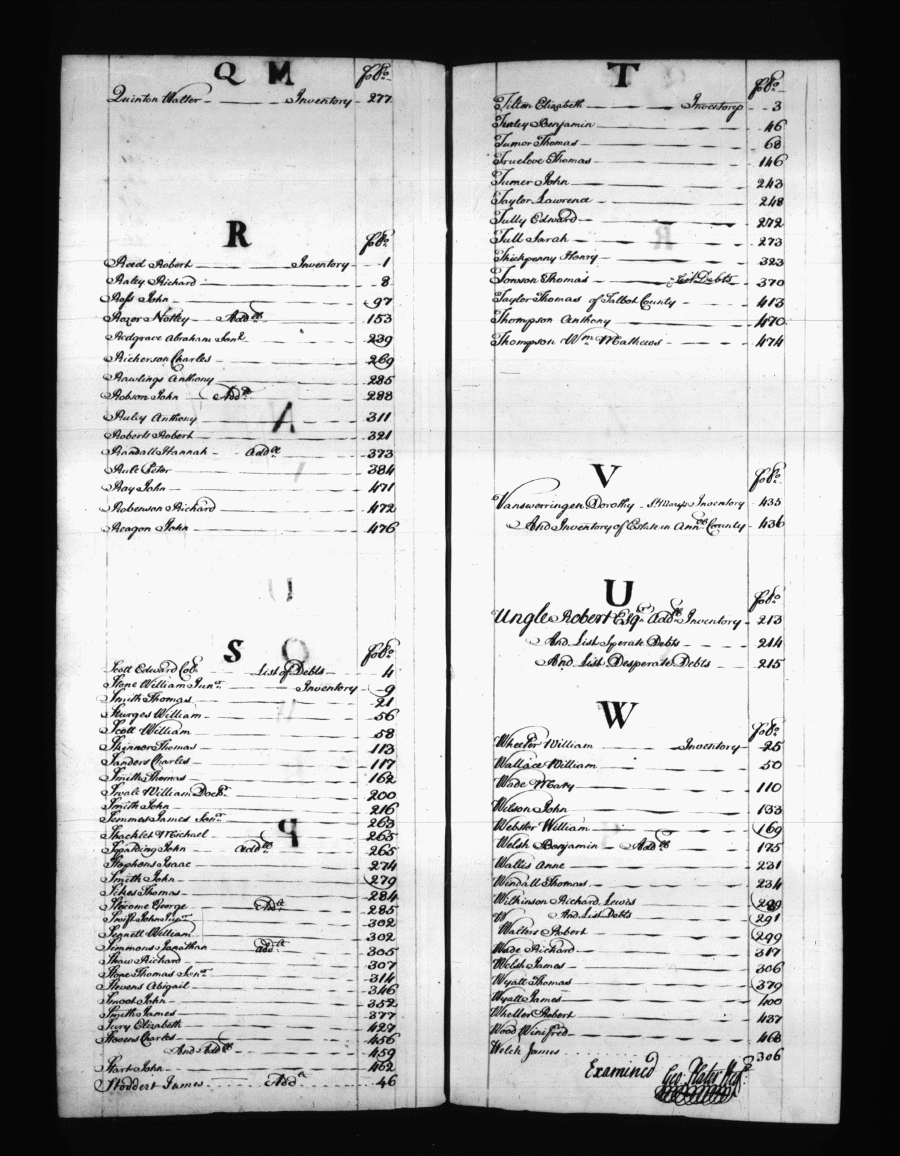 Q M
folo
Quinton Walter Inventory 277
R
folo
Reed Robert Inventory 1
Raley Richard 8
Ross John 97
Rozer Notley Addl 153
Redgrave Abraham Senr 239
Richerson Charles 269
Rawlings Anthony 285
Robson John Addl 288
Ruley Anthony 311
Roberts Robert 321
Randall Hannah Addl 373
Rule Peter 384
Ray John 471
Robenson Richard 472
Reagon John 476
S
folo
Scott Edward Colo List of Debts 4
Stone William Junr Inventory 9
Smith Thomas 21
Sturges William 56
Scott William 58
Skinner Thomas 113
Sanders Charles 117
Smith Thomas 162
Swale William Doctr 200
Smith John 216
Semmes James Senr 263
Shacklet Michael 265
Spalding John Addl 265
Stephens Isaac 274
Smith John 279
Sikes Thomas 284
Slacome George Addl 285
Swift John Junr 302
Sennett William 302
Simmons Jonathan Addl 305
Shaw Richard 307
Stone Thomas Senr 314
Stevens Abigail 346
Smoot John 352
Smith James 377
Sury Elizabeth 427
Stevens Charles 456
And Addl 459
Start John 462
Stoddert James Addl 46
T
folo
Tilton Elizabeth Inventory 3
Turley Benjamin 46
Turner Thomas 68
Truelove Thomas 146
Turner John 243
Taylor Lawrence 248
Tully Edward 272
Tull Sarah 273
Thickpenny Henry 323
Tonson Thomas List Debts 370
Taylor Thomas of Talbot County 413
Thompson Anthony 470
Thompson Wm Mathews 474
V
folo
Vansworringen Dorothy St Marys Inventory 435
And Inventory of Estate in Annl County 436
U
folo
Ungle Robert Esqr Addl Inventory 213
And List Sperate Debts 214
And List Desperate Debts 215
W
folo
Wheeler William Inventory 25
Wallace William 50
Wade Mary 110
Wilson John 133
Webster William 169
Welsh Benjamin Addl 175
Wallis Anne 231
Wendall Thomas 234
Wilkinson Richard Lewis 289
W And List Debts 291
Walters Robert 299
Wade Richard 317
Welsh James 306
Wyatt Thomas 379
Wyatt James 400
Wheller Robert 437
Wood Winifred 468
Welch James 306
Examined Geo Plater Regr